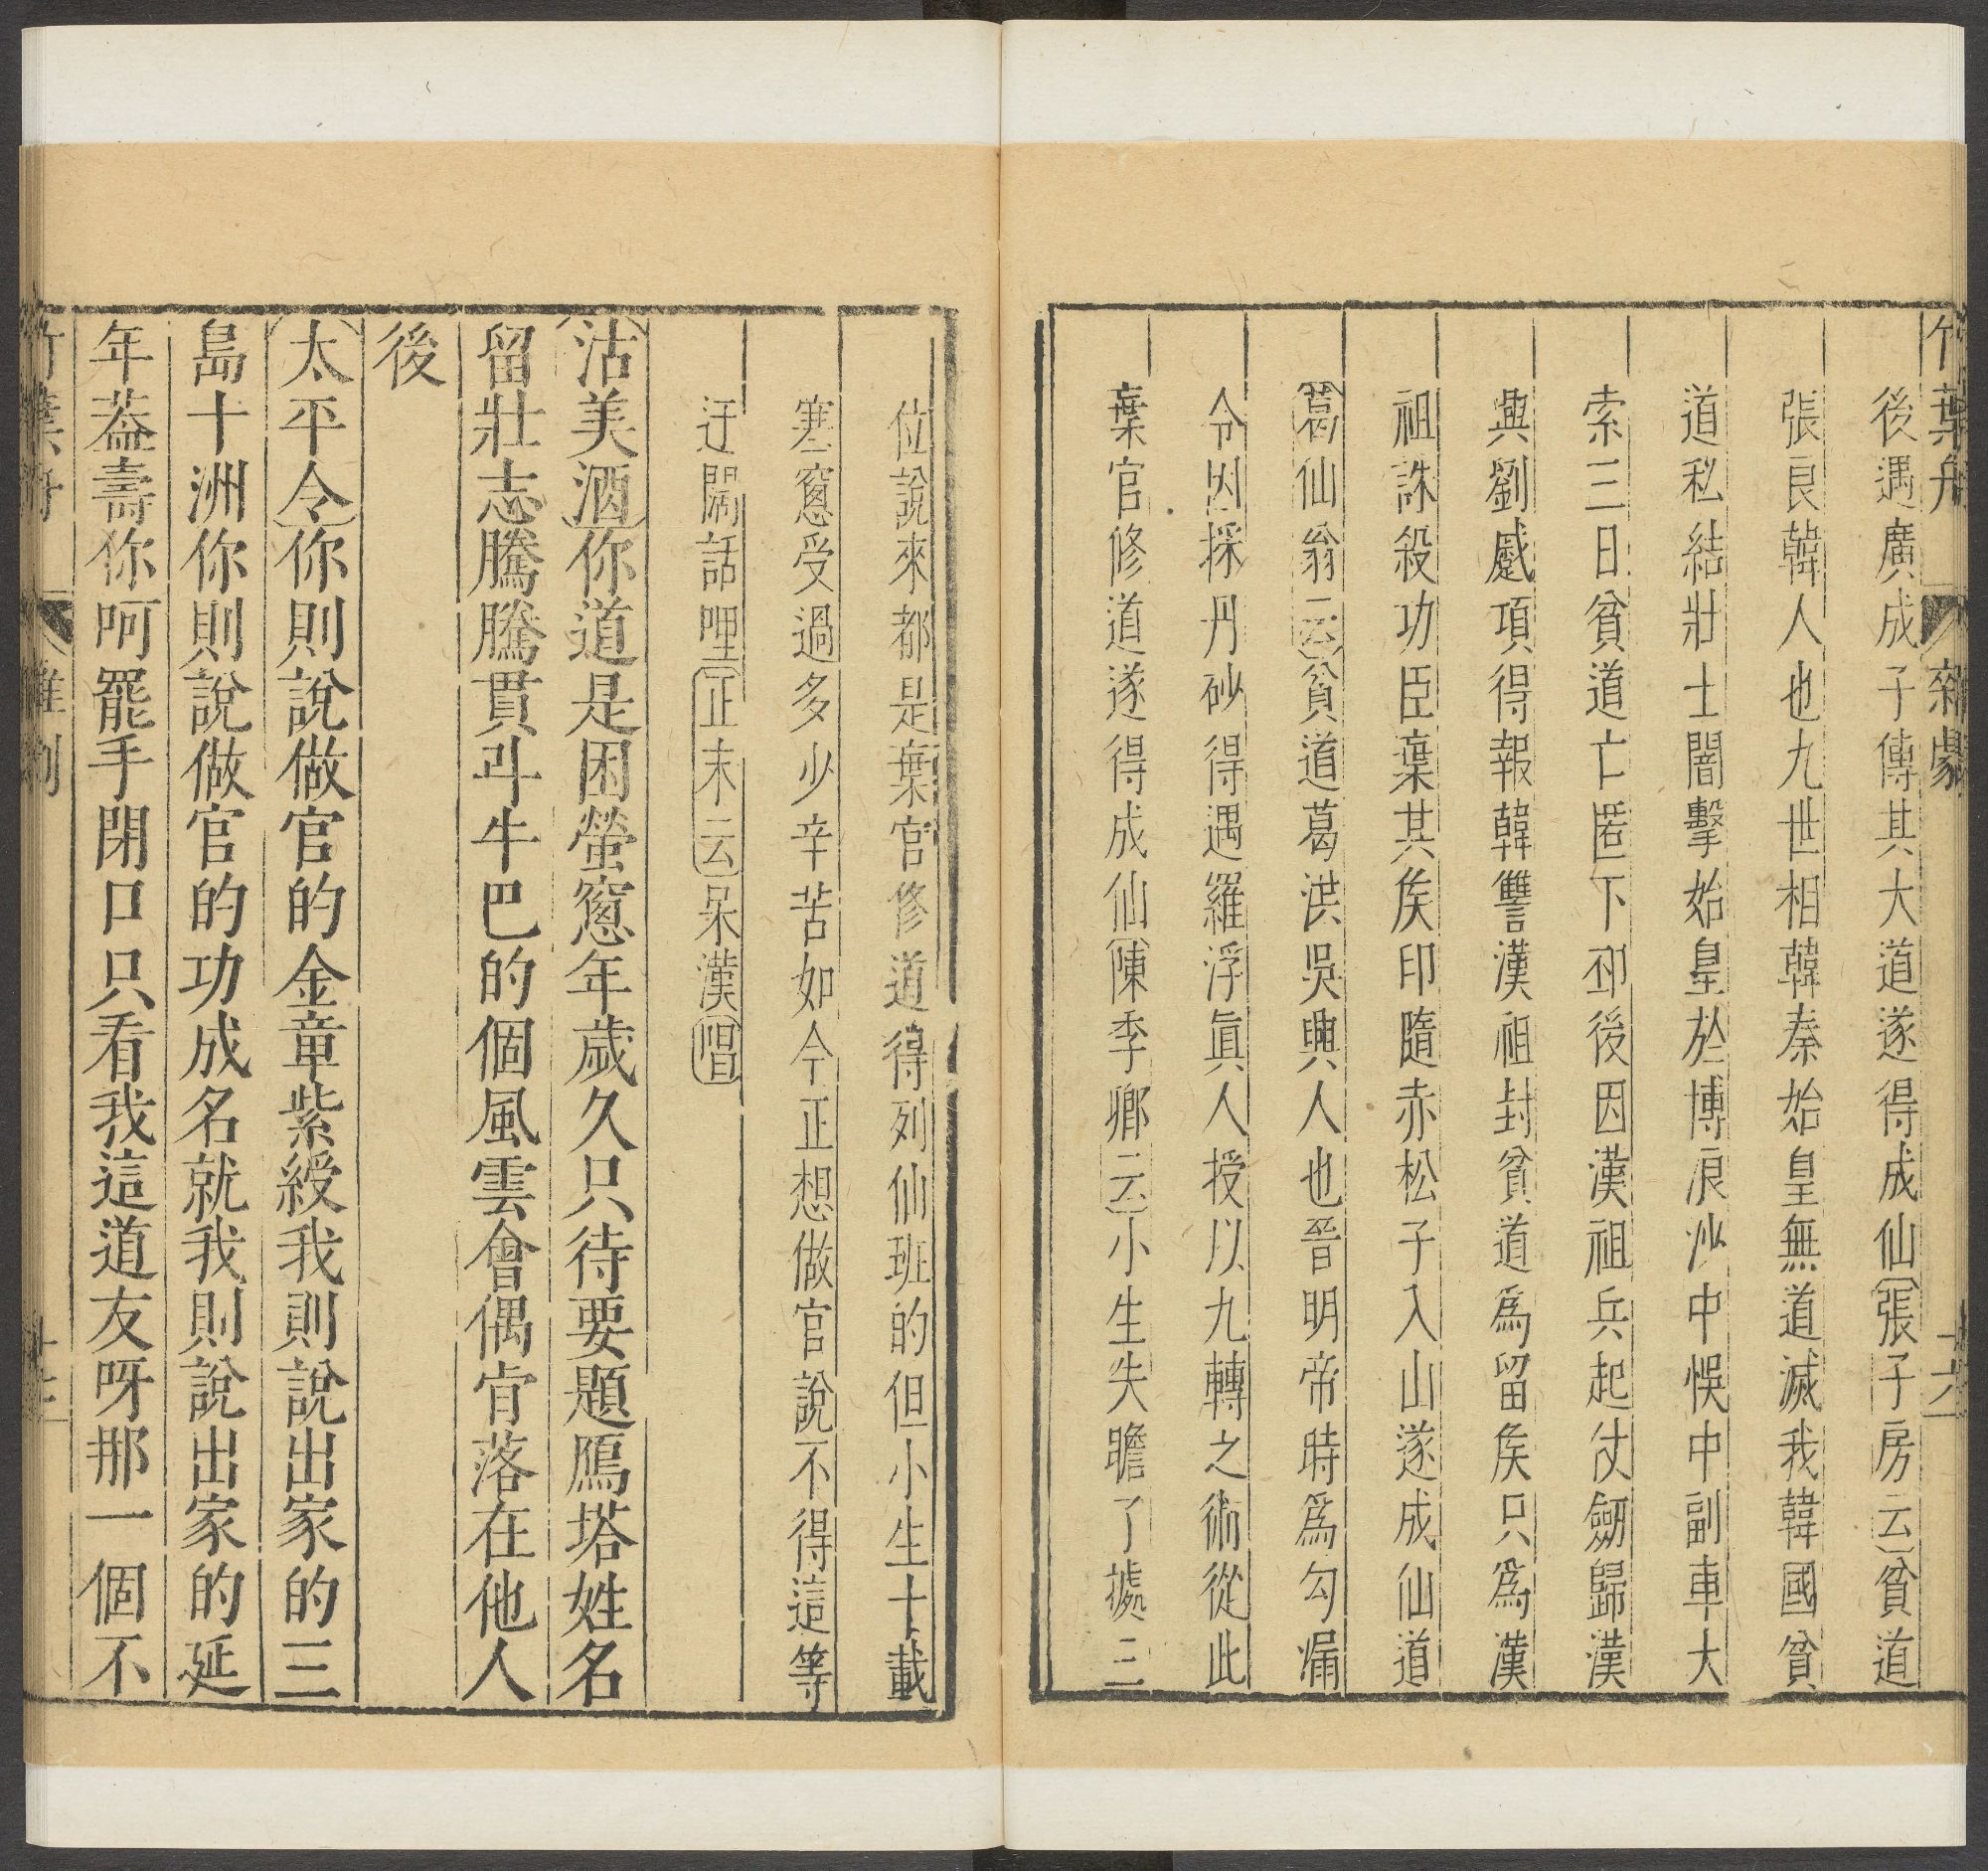 竹葉舟 雜劇 十六
後遇廣成子傳其大道遂得成仙(張子房云)貧道
張良韓人也九世相韓秦始皇無道滅我韓國貧
道私結壯士闇擊始皇於博浪沙中悞中副車大
索三日貧道亡匿下邳後因漢祖兵起仗劒歸漢
興劉蹙項得報韓讐漢祖封貧道爲留矦只爲漢
祖誅殺功臣棄其矦印隨赤松子入山遂成仙道
(葛仙翁云)貧道葛洪吳興人也晉明帝時爲勾漏
令因採丹砂得遇羅浮眞人授以九轉之術從此
棄官修道遂得成仙(陳季卿云)小生失瞻了據三
位說來都是棄官修道得列仙班的但小生十載
塞窻受過多少辛苦如今正想做官說不得這等
迂闊話哩(正末云)呆漢(唱)
(沽美酒)你道是困螢窻年歲久只待要題鴈塔姓名
留壯志騰騰貫斗牛巴的個風雲會偶肯落在他人
後
(太平令)你則說做官的金章紫綬我則說出家的三
島十洲你則說做官的功成名就我則說出家的延
年益壽你呵罷手閉口只看我這道友呀那一個不
竹葉舟 雜劇